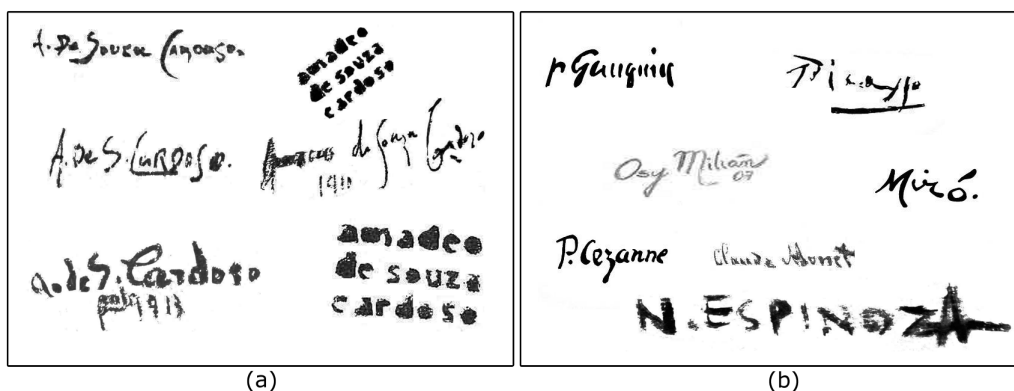 A. De Souza Cardoso.
amadeo
de souza
cardoso
A. De S. Cardoso.
de Souza Cardozo
1910
a. de S. Cardoso
1913
amadeo
de souza
cardoso
(a)
P Gauguin
Picasso
Osy Milián
07
Miró.
P. Cezanne
Claude Monet
N. ESPINOZA
(b)